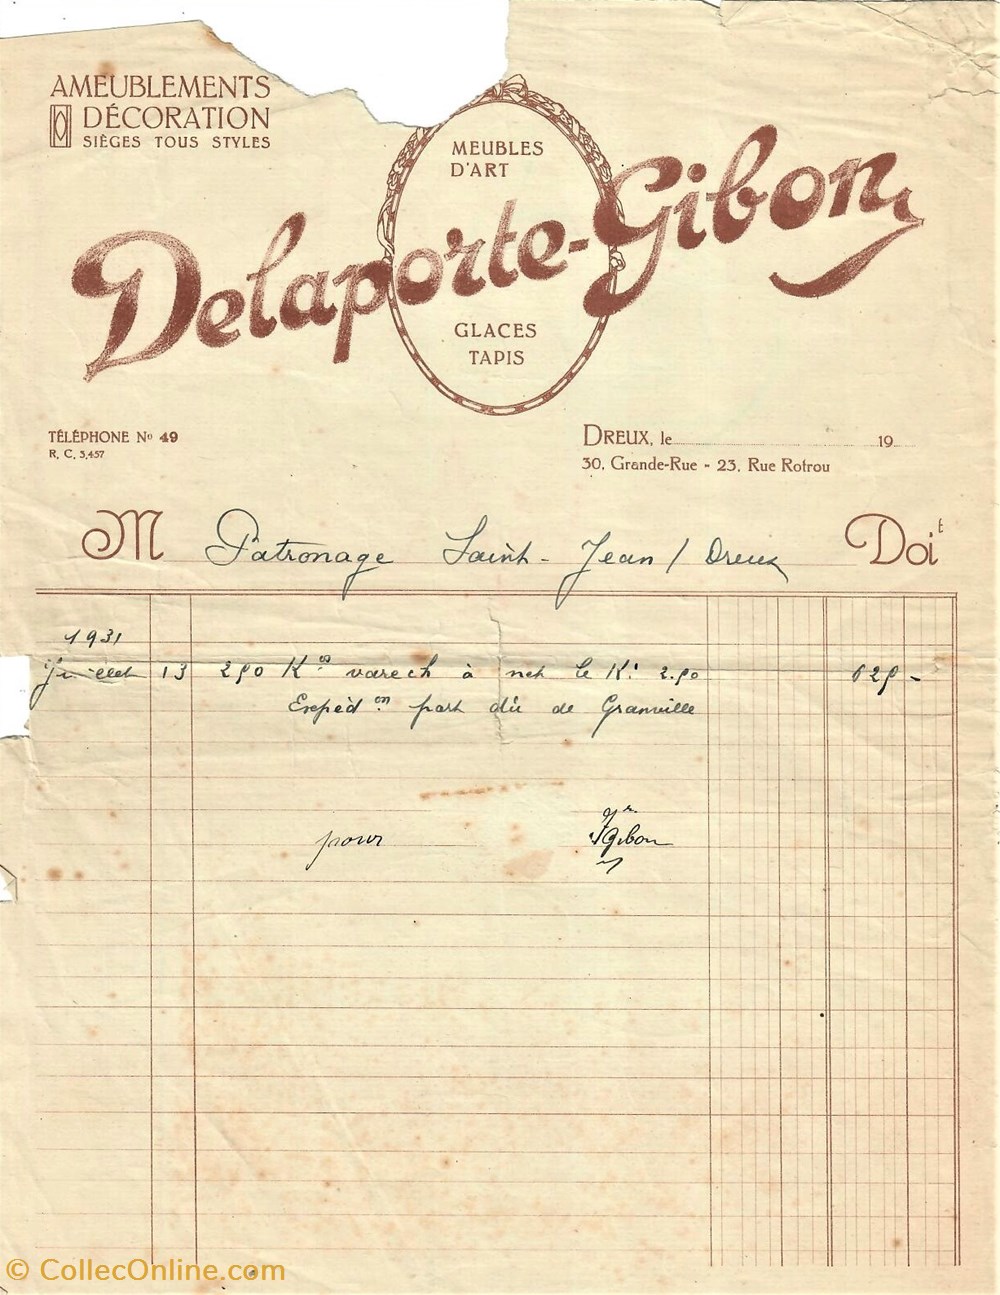 AMEUBLEMENTS
DÉCORATION
SIÈGES TOUS STYLES
MEUBLES
D'ART
Delaporte-Gibon
GLACES
TAPIS
TÉLÉPHONE No 49
R. C. 3.457
DREUX, le 19
30, Grande-Rue - 23, Rue Rotrou
M Patronage Saint-Jean / Dreux Doit
1931
Juillet 13 250 Kos varech à net le K: 2.50 625 -
Expédon port dû de Granville
pour Gibon
© CollecOnline.com